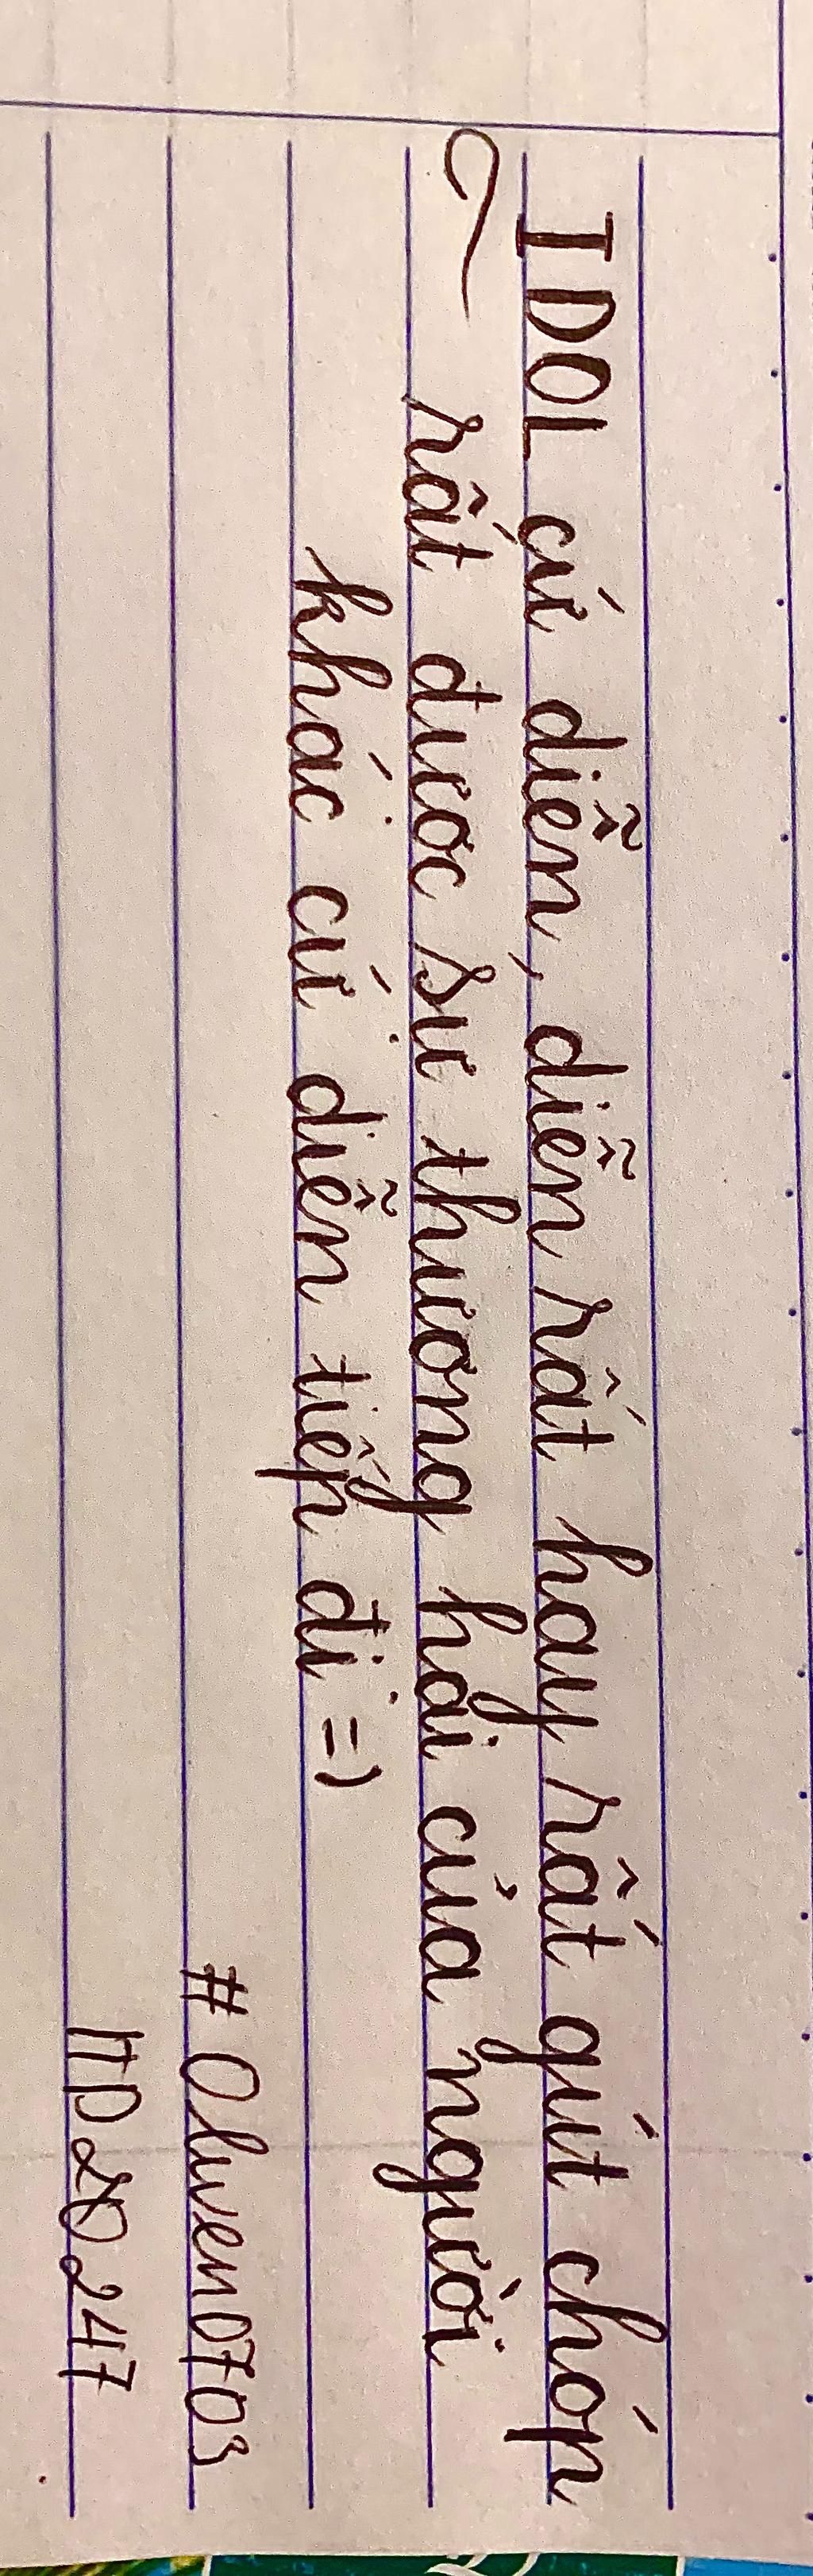 IDOL cứ diễn, diễn rất hay rất gút chóp
rất được sự thương hại của người
khác cứ diễn tiếp đi =)
# Oliven0703
ITD20247